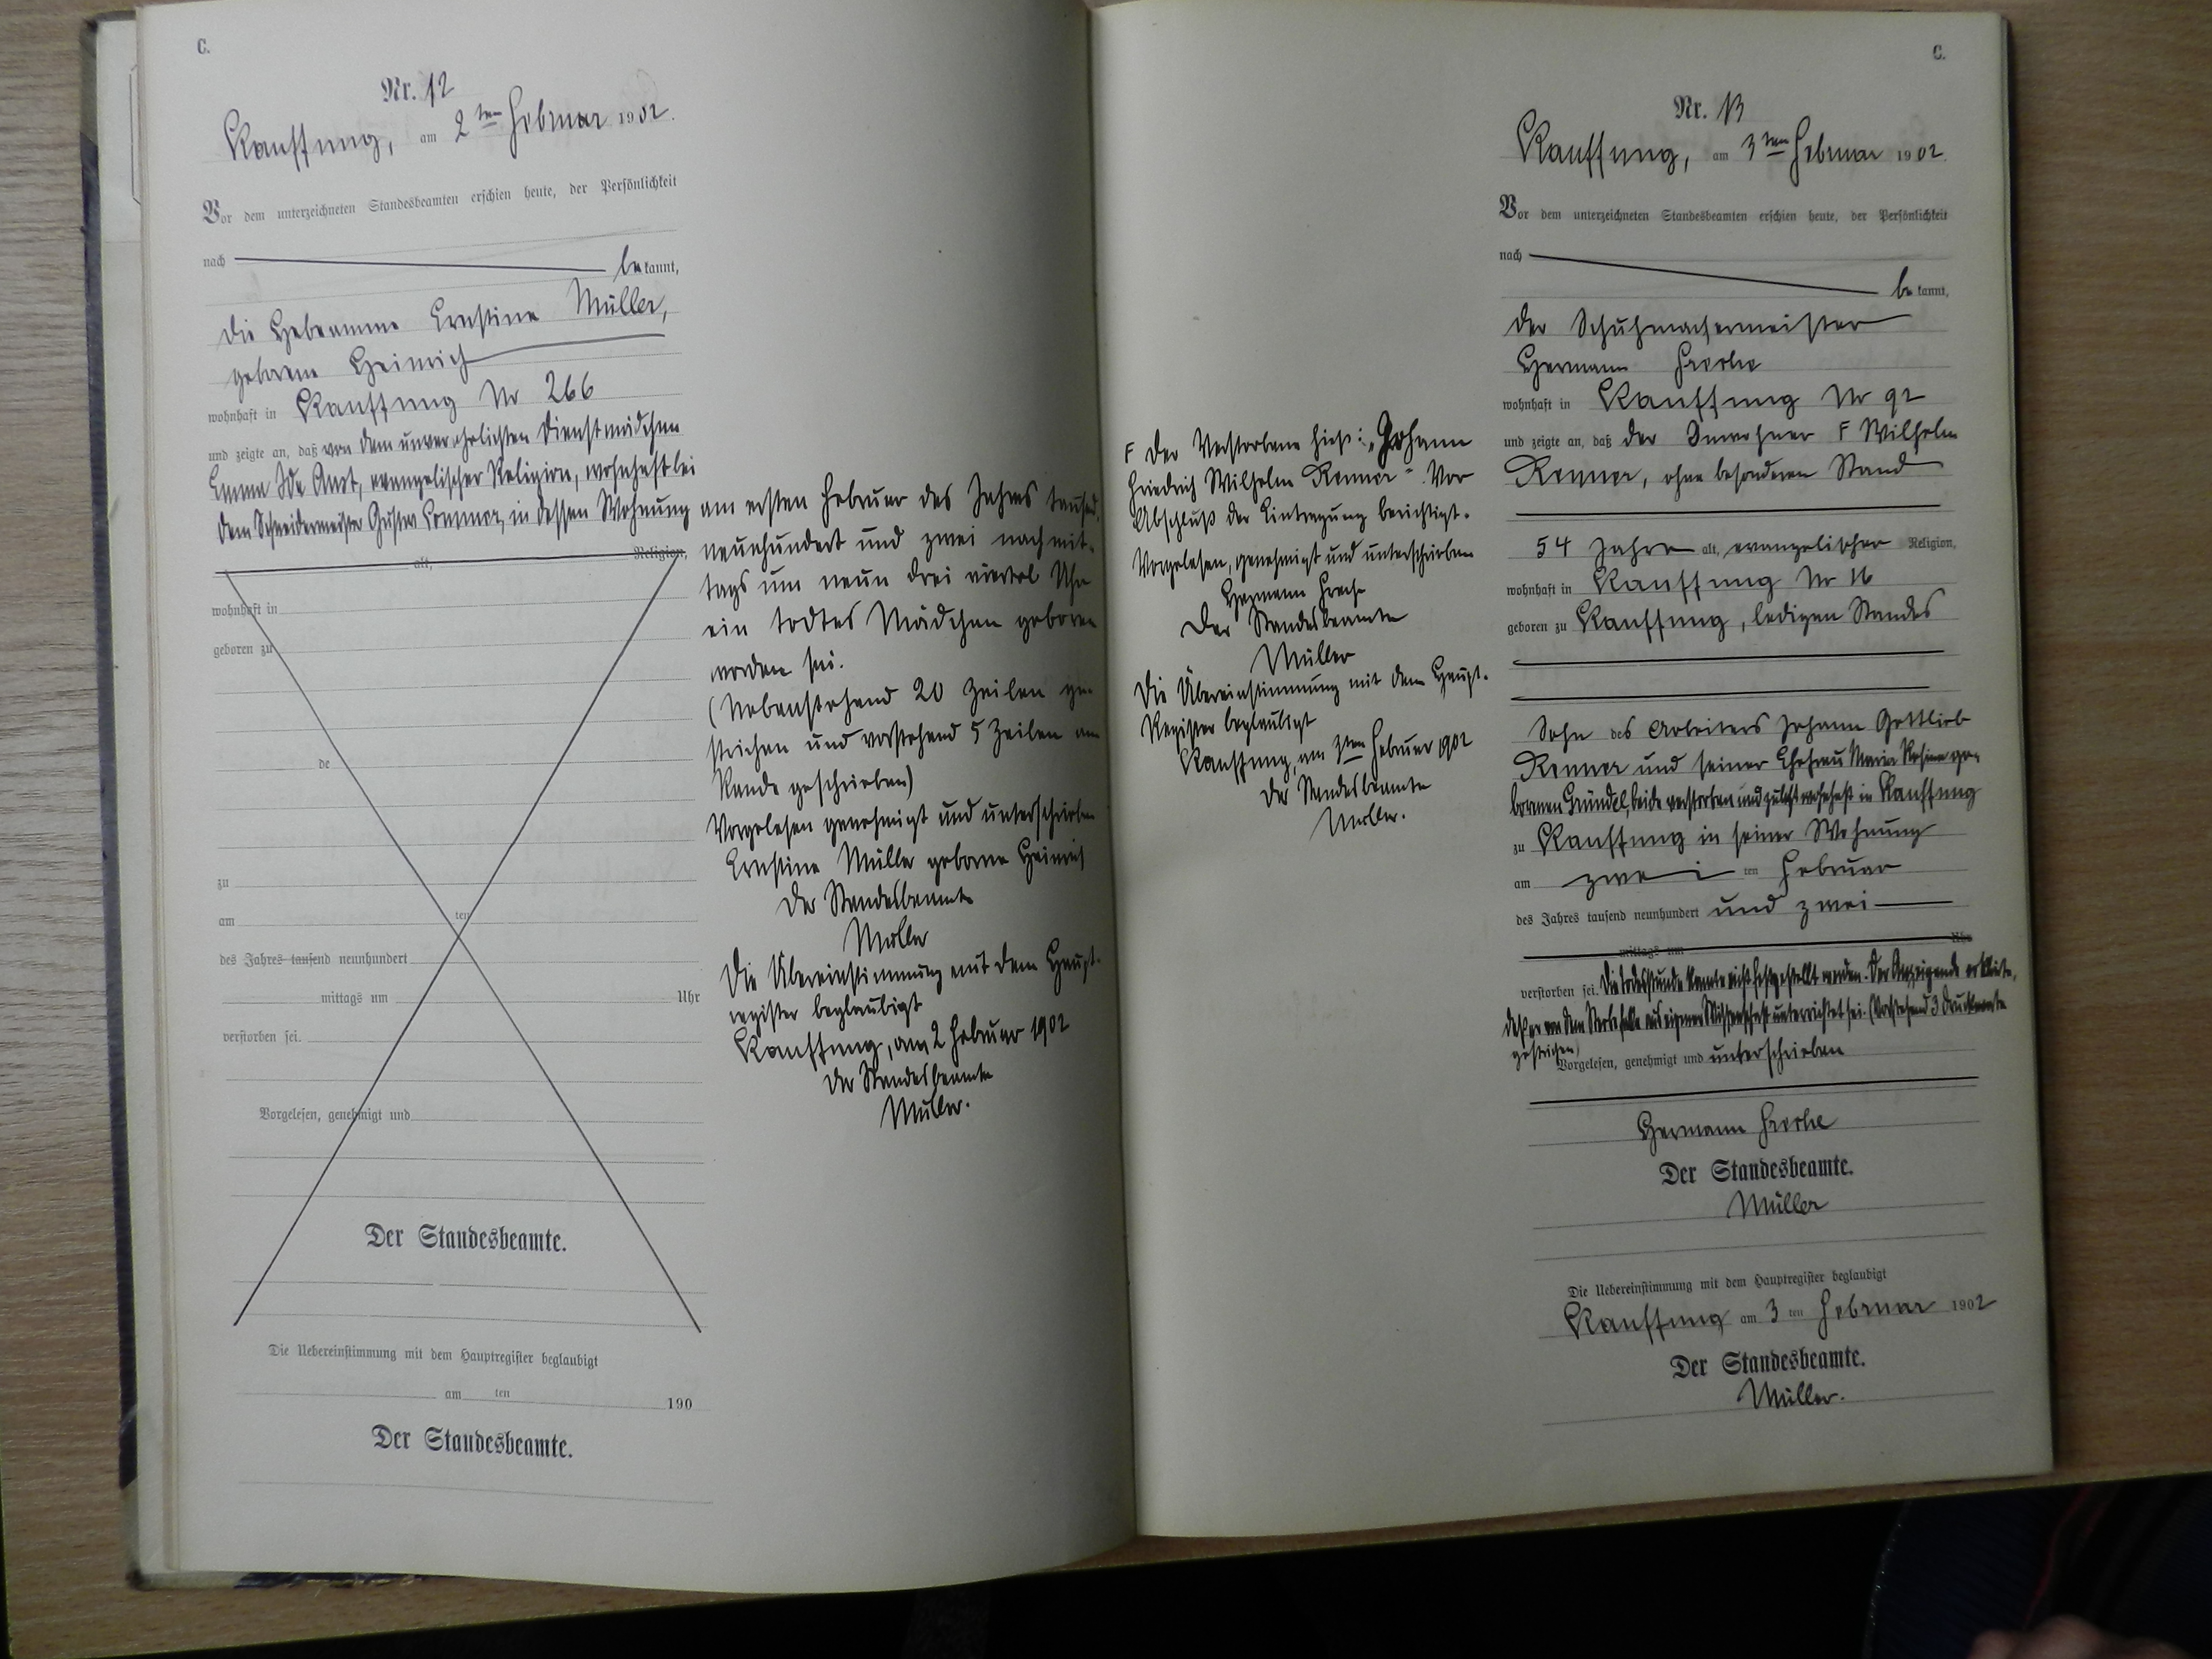 C.
Nr. 12
Kauffung, am 2ten Februar 1902.
Vor dem unterzeichneten Standesbeamten erschien heute, der Persönlichkeit
nach bekannt,
die Hebeamme Ernstine Müller,
geborene Heinrich
wohnhaft in Kauffung Nr 266
und zeigte an, daß von dem unverehelichten Dienstmädchen
Emma Ida evangelischer Religion, wohnhaft bei
dem Schneidermeister Gustav in dessen Wohnung
alt, Religion,
wohnhaft in
geboren zu
de
zu
am ten
des Jahres tausend neunhundert
mittags um Uhr
verstorben sei.
Vorgelesen, genehmigt und
Der Standesbeamte.
Die Uebereinstimmung mit dem Hauptregister beglaubigt
am ten 190
Der Standesbeamte.
am ersten Februar des Jahres tausend
neunhundert und zwei nachmit-
tags um neun drei viertel Uhr
ein todtes Mädchen geboren
worden sei.
(Nebenstehend 20 Zeilen ge-
strichen und vorstehend 5 Zeilen am
Rande geschrieben)
Vorgelesen genehmigt und unterschrieben
Ernstine Müller geborne Heinrich
Der Standesbeamte
Müller
Die Übereinstimmung mit dem Haupt-
register beglaubigt
Kauffung, am 2 Februar 1902
Der Standesbeamte
Müller.
F Der Verstorbene hieß: „Johann
Friedrich Wilhelm Renner“. Vor
Abschluß der Eintragung berichtigt.
Vorgelesen, genehmigt und unterschrieben
Hermann
Der Standesbeamte
Müller
Die Übereinstimmung mit dem Haupt-
Register beglaubigt
Kauffung, am 3ten Februar 1902
Der Standesbeamte
Müller.
C.
Nr. 13
Kauffung, am 3ten Februar 1902.
Vor dem unterzeichneten Standesbeamten erschien heute, der Persönlichkeit
nach bekannt,
der Schuhmachermeister
Hermann
wohnhaft in Kauffung Nr 92
und zeigte an, daß der Inwohner F Wilhelm
Renner, ohne besonderen Stand
54 Jahre alt, evangelischer Religion,
wohnhaft in Kauffung Nr 16
geboren zu Kauffung, ledigen Standes
Sohn des Arbeiters Johann Gottlieb
Renner und seiner Ehefrau Maria Rosina ge-
bornen Gründel, beide verstorben und zuletzt wohnhaft in Kauffung
zu Kauffung in seiner Wohnung
am zwei ten Februar
des Jahres tausend neunhundert und zwei
mittags um Uhr
verstorben sei. Die Todesstunde konnte nicht festgestellt werden. Der Anzeigende erklärte,
daß er von dem Sterbefalle aus eigener Wissenschaft unterrichtet sei. (Vorstehend 3 Druckworte
gestrichen)
Vorgelesen, genehmigt und unterschrieben
Hermann
Der Standesbeamte.
Müller
Die Uebereinstimmung mit dem Hauptregister beglaubigt
Kauffung am 3 ten Februar 1902
Der Standesbeamte.
Müller.